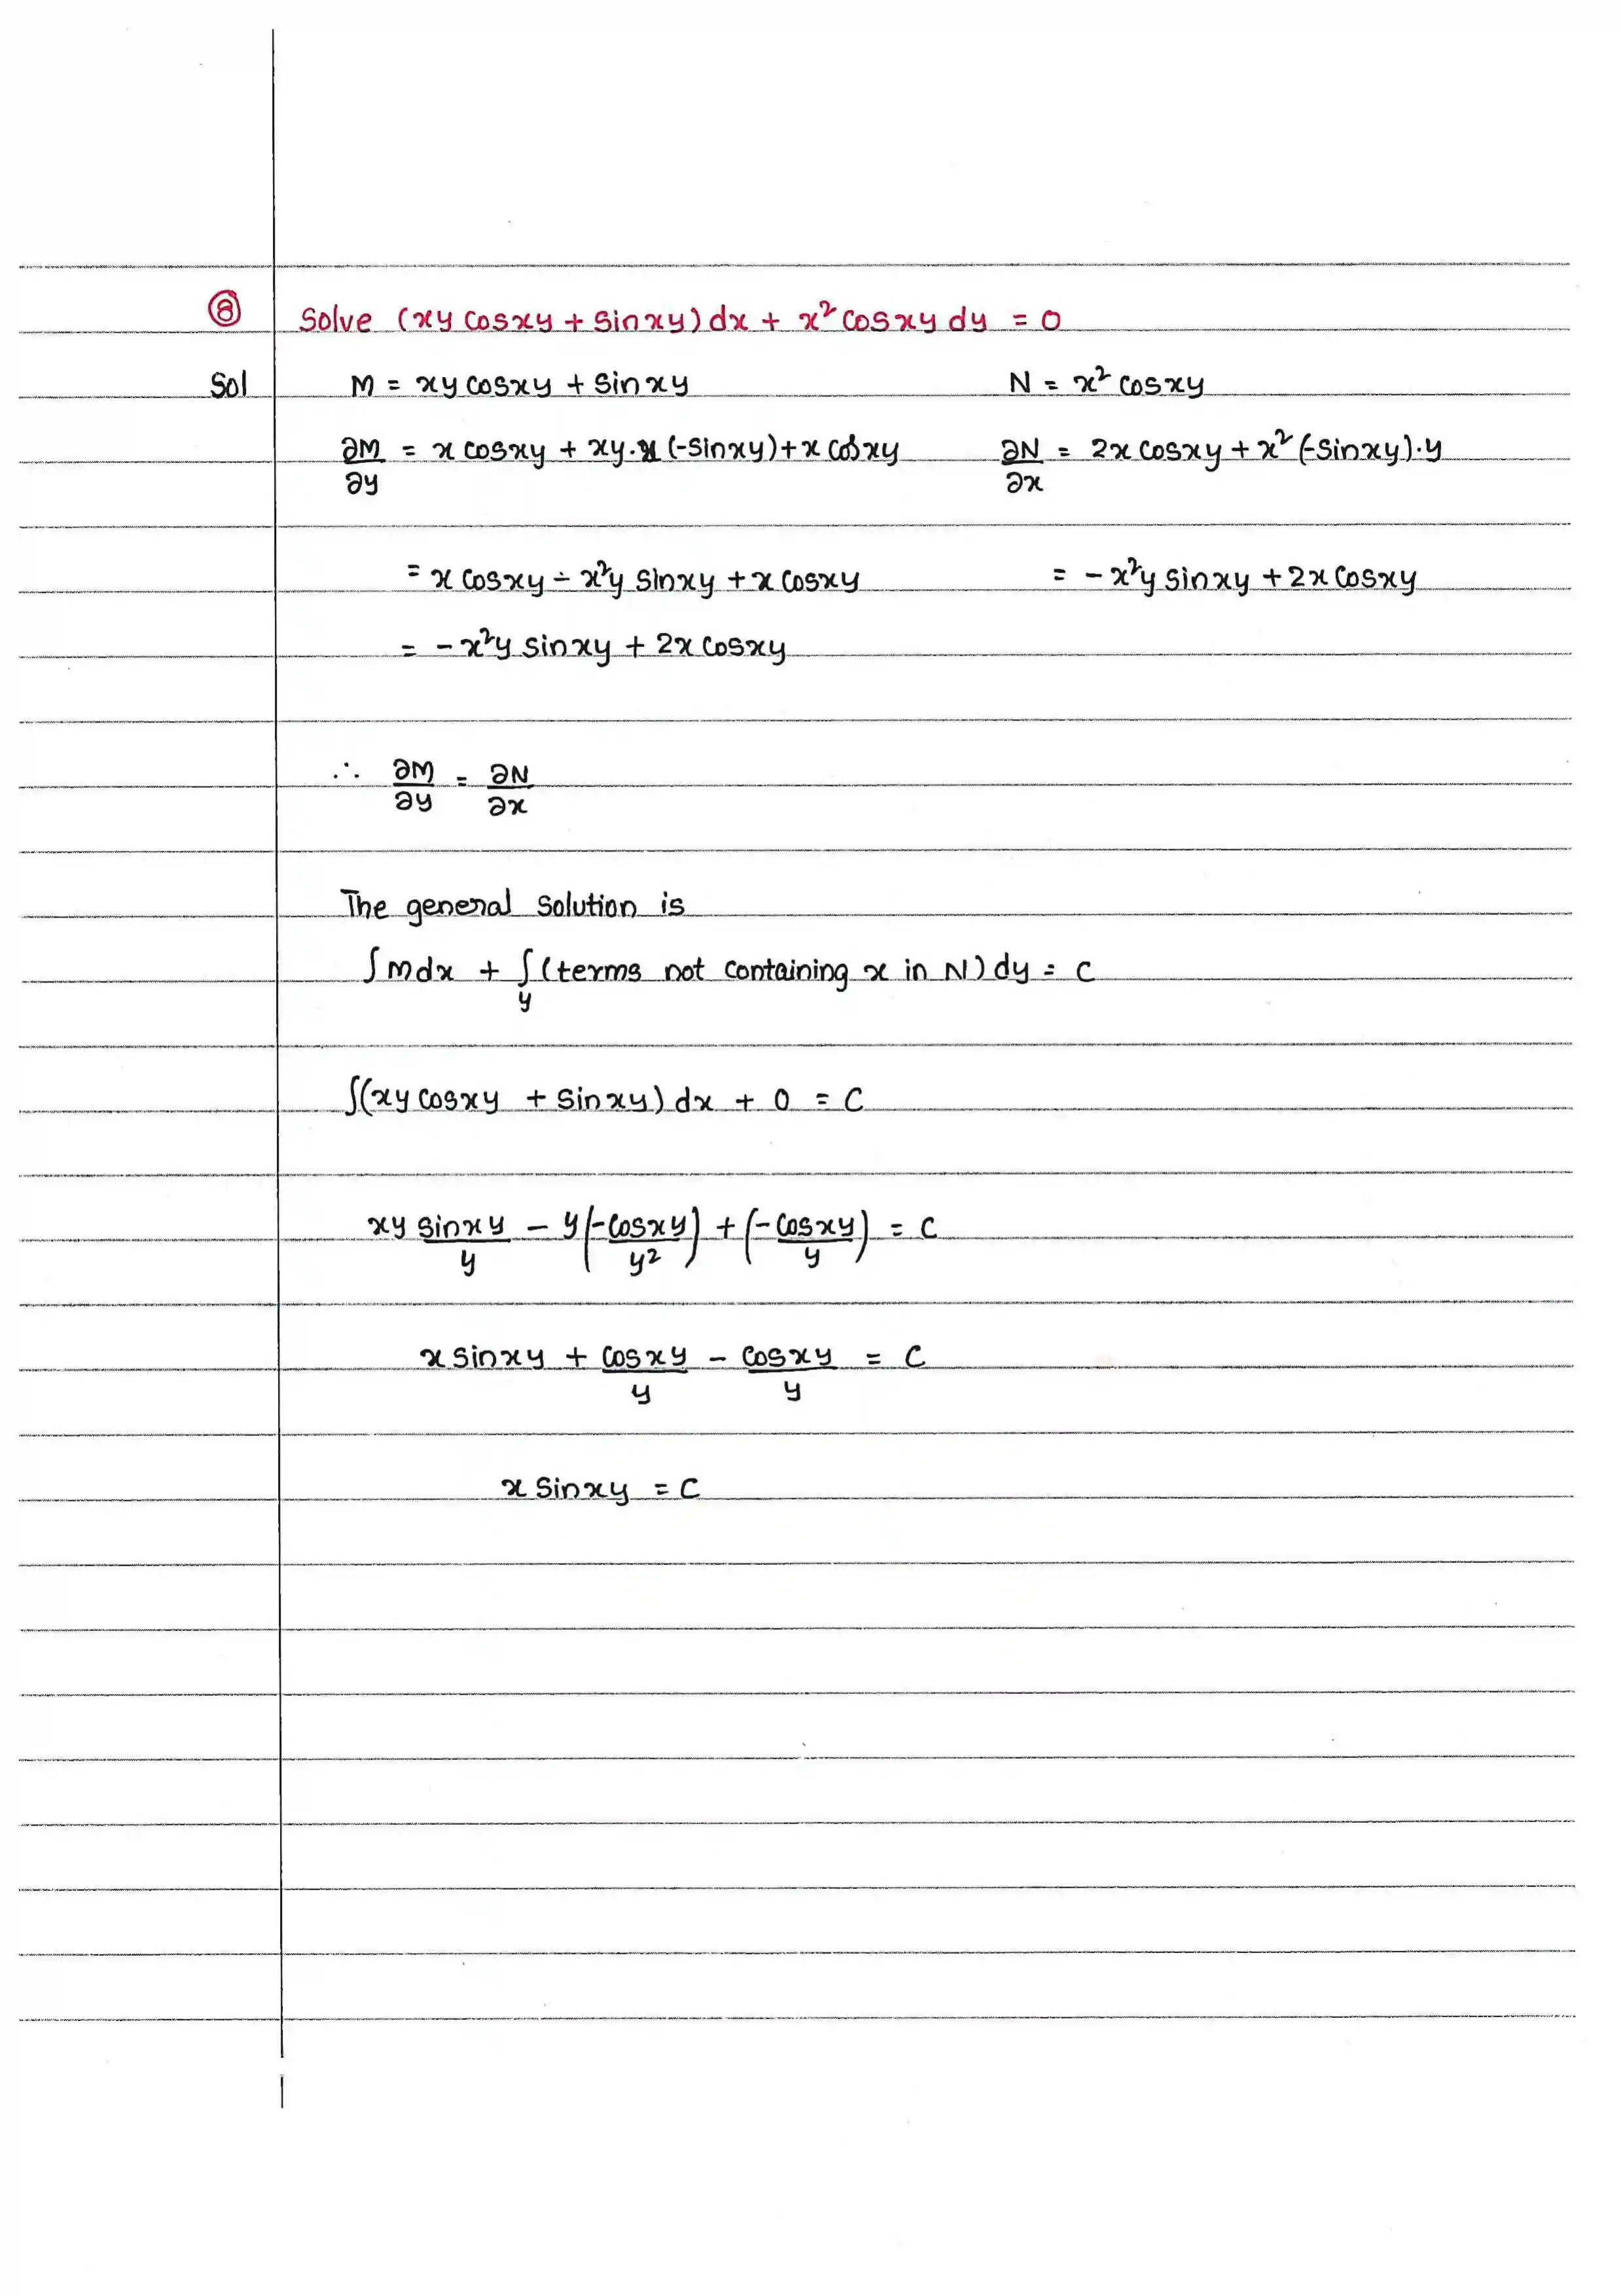 ⑧ Solve (xy cosxy + sinxy) dx + x² cosxy dy = 0
Sol M = xy cosxy + sinxy N = x² cosxy
∂M/∂y = x cosxy + xy·x (-sinxy) + x cosxy ∂N/∂x = 2x cosxy + x² (-sinxy)·y
= x cosxy - x²y sinxy + x cosxy = - x²y sinxy + 2x cosxy
= - x²y sinxy + 2x cosxy
∴ ∂M/∂y = ∂N/∂x
The general solution is
∫ Mdx + ∫y (terms not containing x in N) dy = c
∫(xy cosxy + sinxy) dx + 0 = c
xy sinxy/y - y(-cosxy/y²) + (-cosxy/y) = c
x sinxy + cosxy/y - cosxy/y = c
x sinxy = c